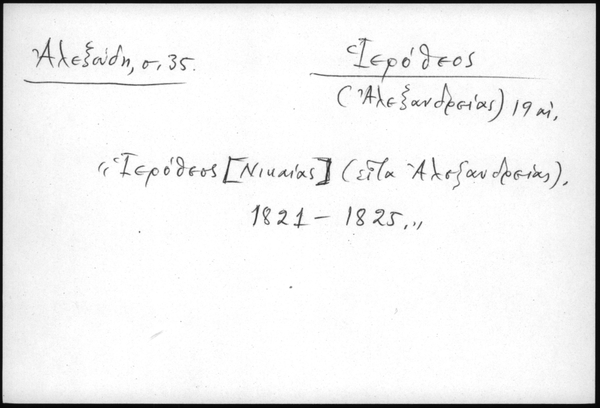 Ἀλεξούδη, σ. 35.
Ἱερόθεος
(Ἀλεξανδρείας) 19 αἰ.
"Ἱερόθεος [Νικαίας] (εἶτα Ἀλεξανδρείας),
1821 – 1825."